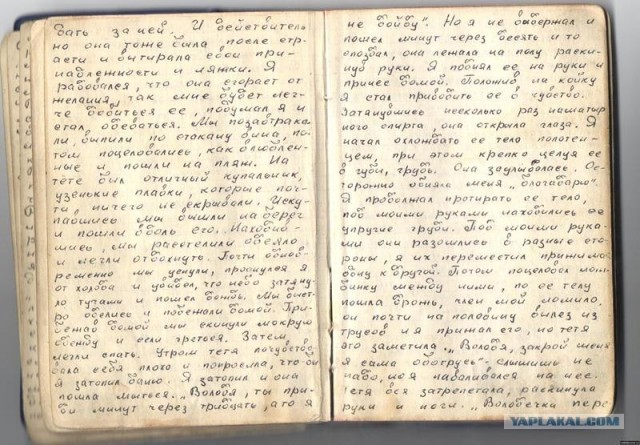 бать за ней. И действитель
но она тоже была после стр-
асти и вытирала свои при-
надлежности и ляжки. Я
радовался, что она сгорает от
желания, так мне будет лег-
че ее, подумал я и
стал одеваться. Мы позавтрака-
ли, выпили по стакану вина, по-
том поцеловались, как влюблен-
ные и пошли на пляж. На
тёте был отличный купальник,
узенькие плавки, которые поч-
ти ничего не скрывали. Иску-
павшись мы вышли на берег
и пошли вдоль его.
мы расстелили одеяло
и легли отдохнуть. Почти однов-
ременно мы уснули, проснулся я
от холода и увидел, что небо затяну-
ло тучами и пошел дождь. Мы быст-
ро оделись и побежали домой. При-
бежав домой мы скинули мокрую
одежду и сели греться. Затем,
легли спать. Утром тетя почувство-
вала себя плохо и попросила, что бы
я затопил баню. Я затопил и она
пошла мыться. „Володя, ты при-
ди минут через тридцать, а то я
не дойду". Но я не выдержал и
пошел минут через десять и то
опоздал, она лежала на полу раски-
нув руки. Я поднял ее на руки и
принес домой. Положив на койку
я стал приводить ее в чувство.
Затянувшись несколько раз нашатыр
ного спирта, она открыла глаза. Я
начал охлождать ее тело полотен-
цем, при этом крепко целуя ее
в губы, грудь. Она заулыбалась. Ос-
торожно обняла меня „благодарю".
Я продолжал протирать ее тело,
под моими руками находились ее
упругие груди. Под моими рука-
ми они разошлись в разные сто-
роны, я их переместил прижимая
одну к другой. Потом поцеловал лож-
бинку между ними, по ее телу
пошла дрожь, член мой ломило.
он почти на половину вылез из
трусов и я прижал его, но тетя
это заметила. „Володя, закрой меня
я сама обогреюсь - слышишь не
надо, но я наваливался на нее.
Тетя вся затрепетала, раскинула
руки и ноги. „Володечка пере
YAPLAKAL.COM